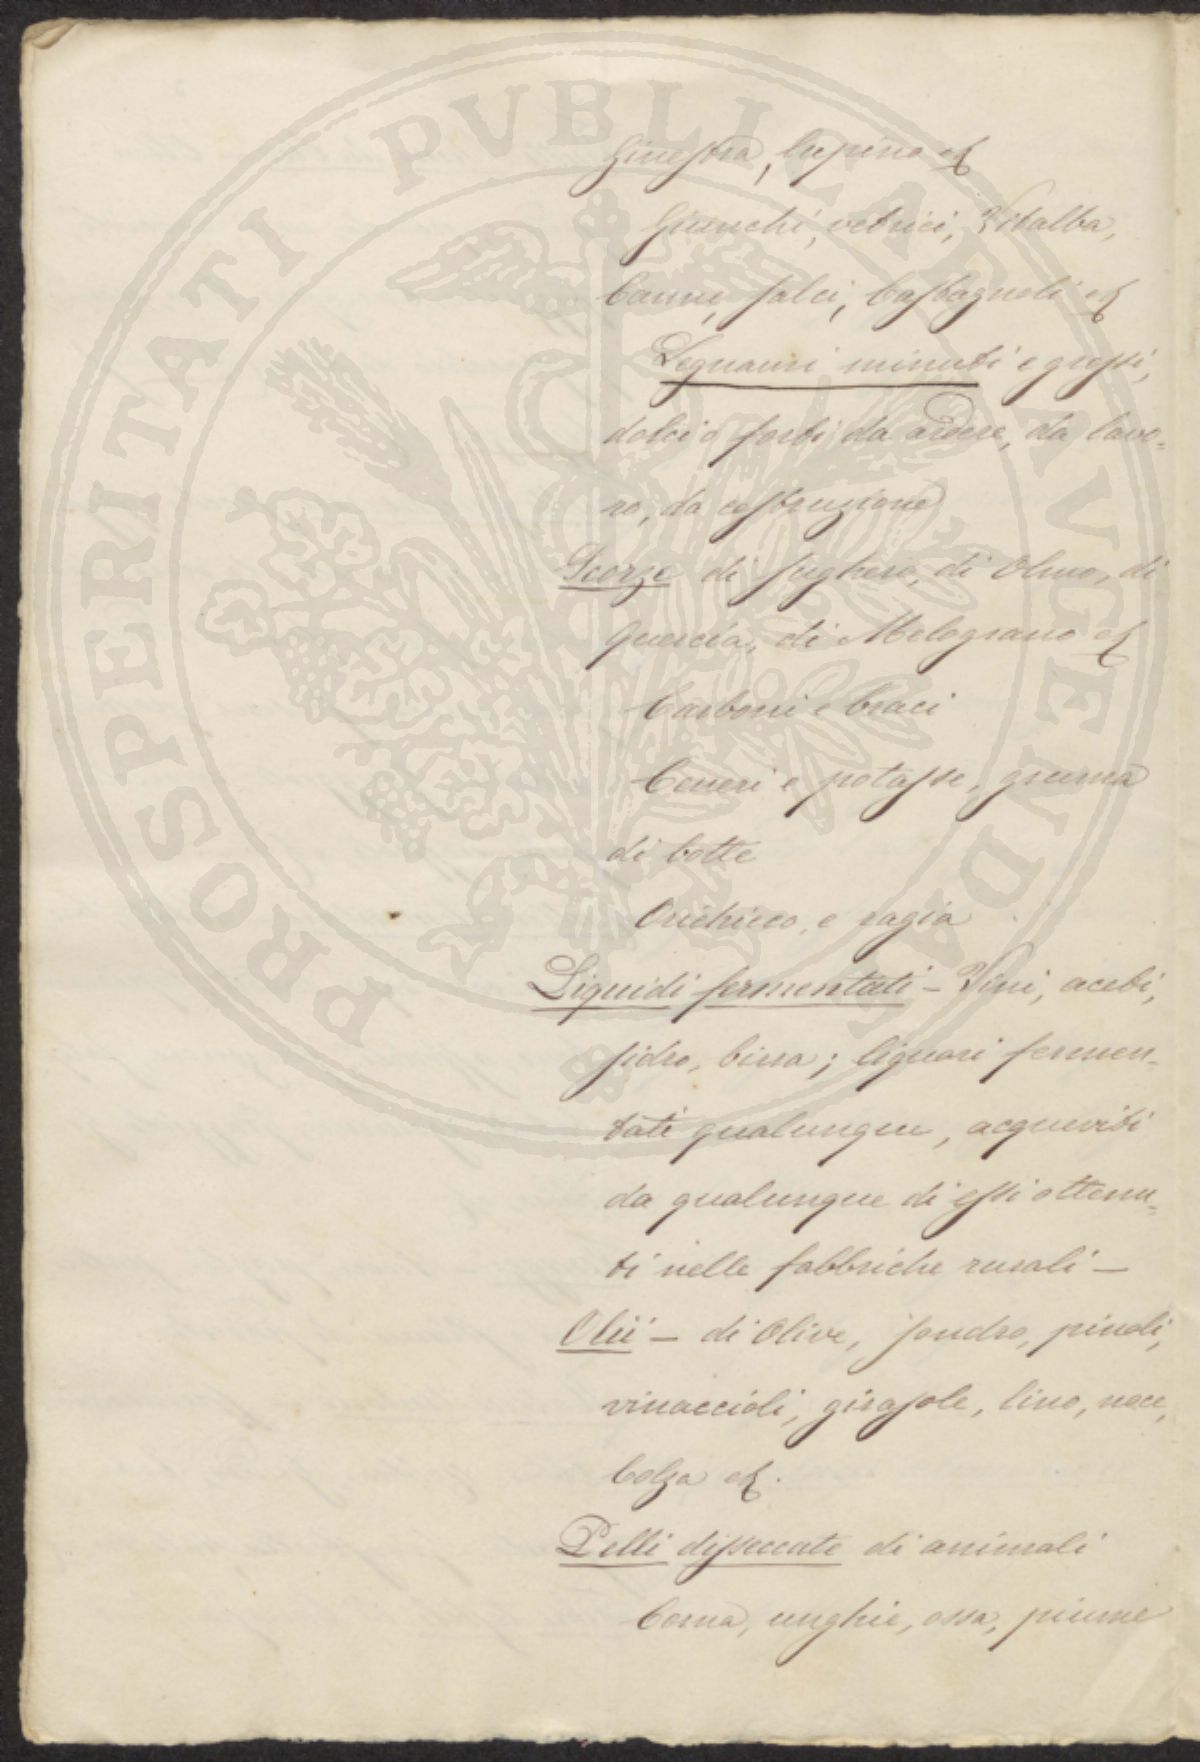 PROSPERITATI PVBLICAE AVGENDAE
Ginestra, lupino es
Giunchi, vetrici, Vitalba,
Canne, salci, Castagnoli es
Legnami minuti e grossi,
dolci o forti da ardere, da lavo-
ro, da costruzione
Scorze di sughero, di Olmo, di
Quercia, di Melograno es
Carboni e braci
Ceneri e potasse, gruma
di botte
Orichicco, e ragia
Liquidi fermentati – Vini, aceti,
sidro, birra; liquori fermen-
tati qualunque, acqueviti
da qualunque di essi ottenu-
ti nelle fabbriche rurali –
Olii – di Olive, pinoli,
vinaccioli, girasole, lino, noce,
Colza es.
Pelli disseccate di animali
Corna, unghie, ossa, piume